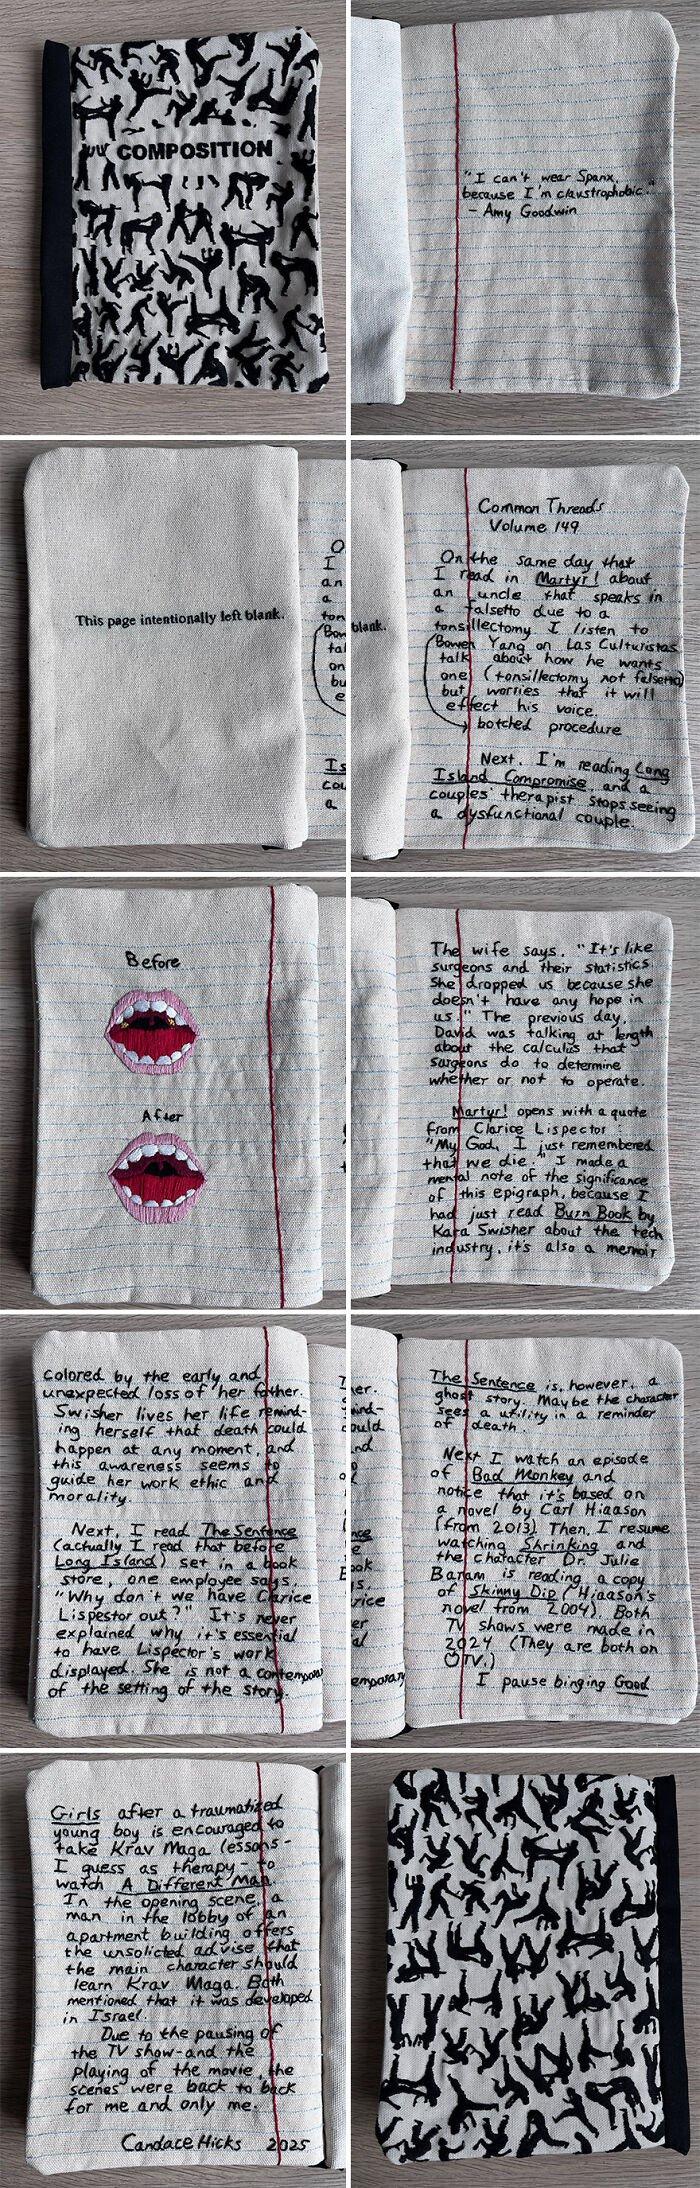 COMPOSITION
"I can't wear Spanx,
because I'm claustrophobic."
- Amy Goodwin
This page intentionally left blank.
Common Threads
Volume 149
On the same day that
I read in Martyr! about
an uncle that speaks in
a falsetto due to a
tonsillectomy I listen to
Bowen Yang on Las Culturistas
talk about how he wants
one (tonsillectomy not falsetto)
but worries that it will
effect his voice.
botched procedure
Next, I'm reading Long
Island Compromise, and a
couples' therapist stops seeing
a dysfunctional couple.
Before
After
The wife says, "It's like
surgeons and their statistics.
She dropped us because she
doesn't have any hope in
us." The previous day,
David was talking at length
about the calculus that
surgeons do to determine
whether or not to operate.
Martyr! opens with a quote
from Clarice Lispector:
"My God, I just remembered
that we die." I made a
mental note of the significance
of this epigraph, because I
had just read Burn Book by
Kara Swisher about the tech
industry, it's also a memoir
colored by the early and
unexpected loss of her father.
Swisher lives her life remind-
ing herself that death could
happen at any moment, and
this awareness seems to
guide her work ethic and
morality.
Next, I read The Sentence
(actually I read that before
Long Island) set in a book
store, one employee says,
"Why don't we have Clarice
Lispestor out?" It's never
explained why it's essential
to have Lispector's work
displayed. She is not a contemporary
of the setting of the story.
The Sentence is, however, a
ghost story. Maybe the character
sees a utility in a reminder
of death.
Next I watch an episode
of Bad Monkey and
notice that it's based on
a novel by Carl Hiaason
(from 2013). Then, I resume
watching Shrinking and
the character Dr. Julie
Baram is reading a copy
of Skinny Dip (Hiaason's
novel from 2004). Both
TV shows were made in
2024 (They are both on
TV.)
I pause binging Good
Girls after a traumatized
young boy is encouraged to
take Krav Maga lessons-
I guess as therapy - to
watch A Different Man
In the opening scene, a
man in the lobby of an
apartment building offers
the unsolicted advise that
the main character should
learn Krav Maga. Both
mentioned that it was developed
in Israel.
Due to the pausing of
the TV show-and the
playing of the movie, the
scenes were back to back
for me and only me.
Candace Hicks 2025